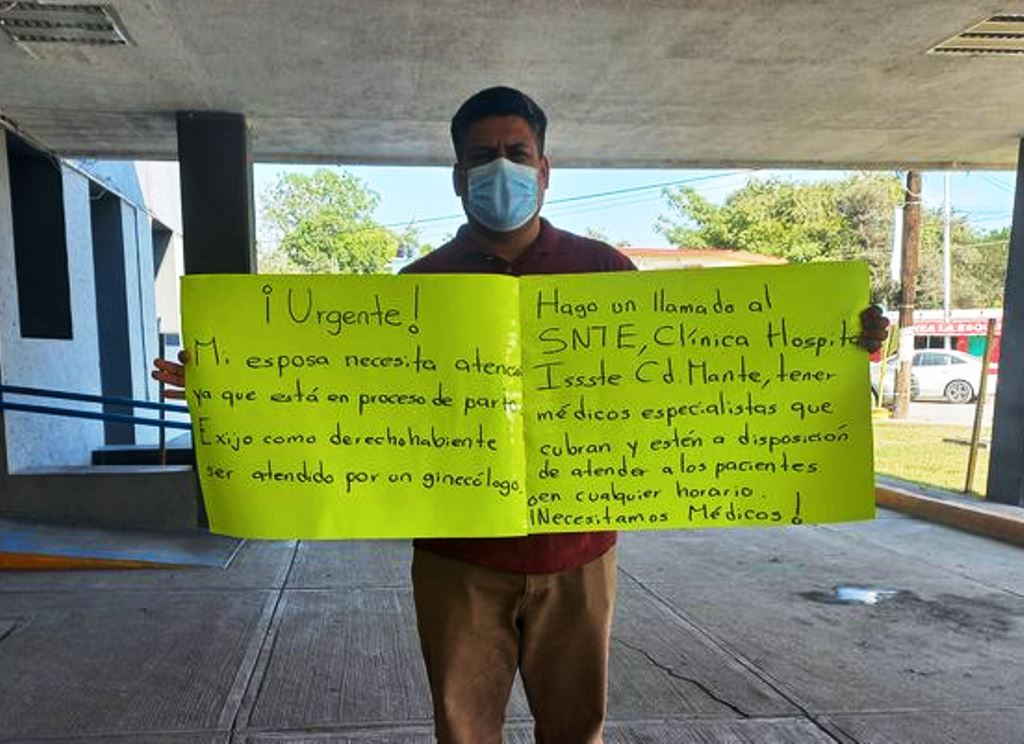 ¡Urgente!
Mi esposa necesita atenc
ya que está en proceso de parto
Exijo como derechohabiente
ser atendido por un ginecólogo.
Hago un llamado al
SNTE, Clínica Hospita
Issste Cd. Mante, tener
médicos especialistas que
cubran y estén a disposición
de atender a los pacientes
en cualquier horario.
¡Necesitamos Médicos!